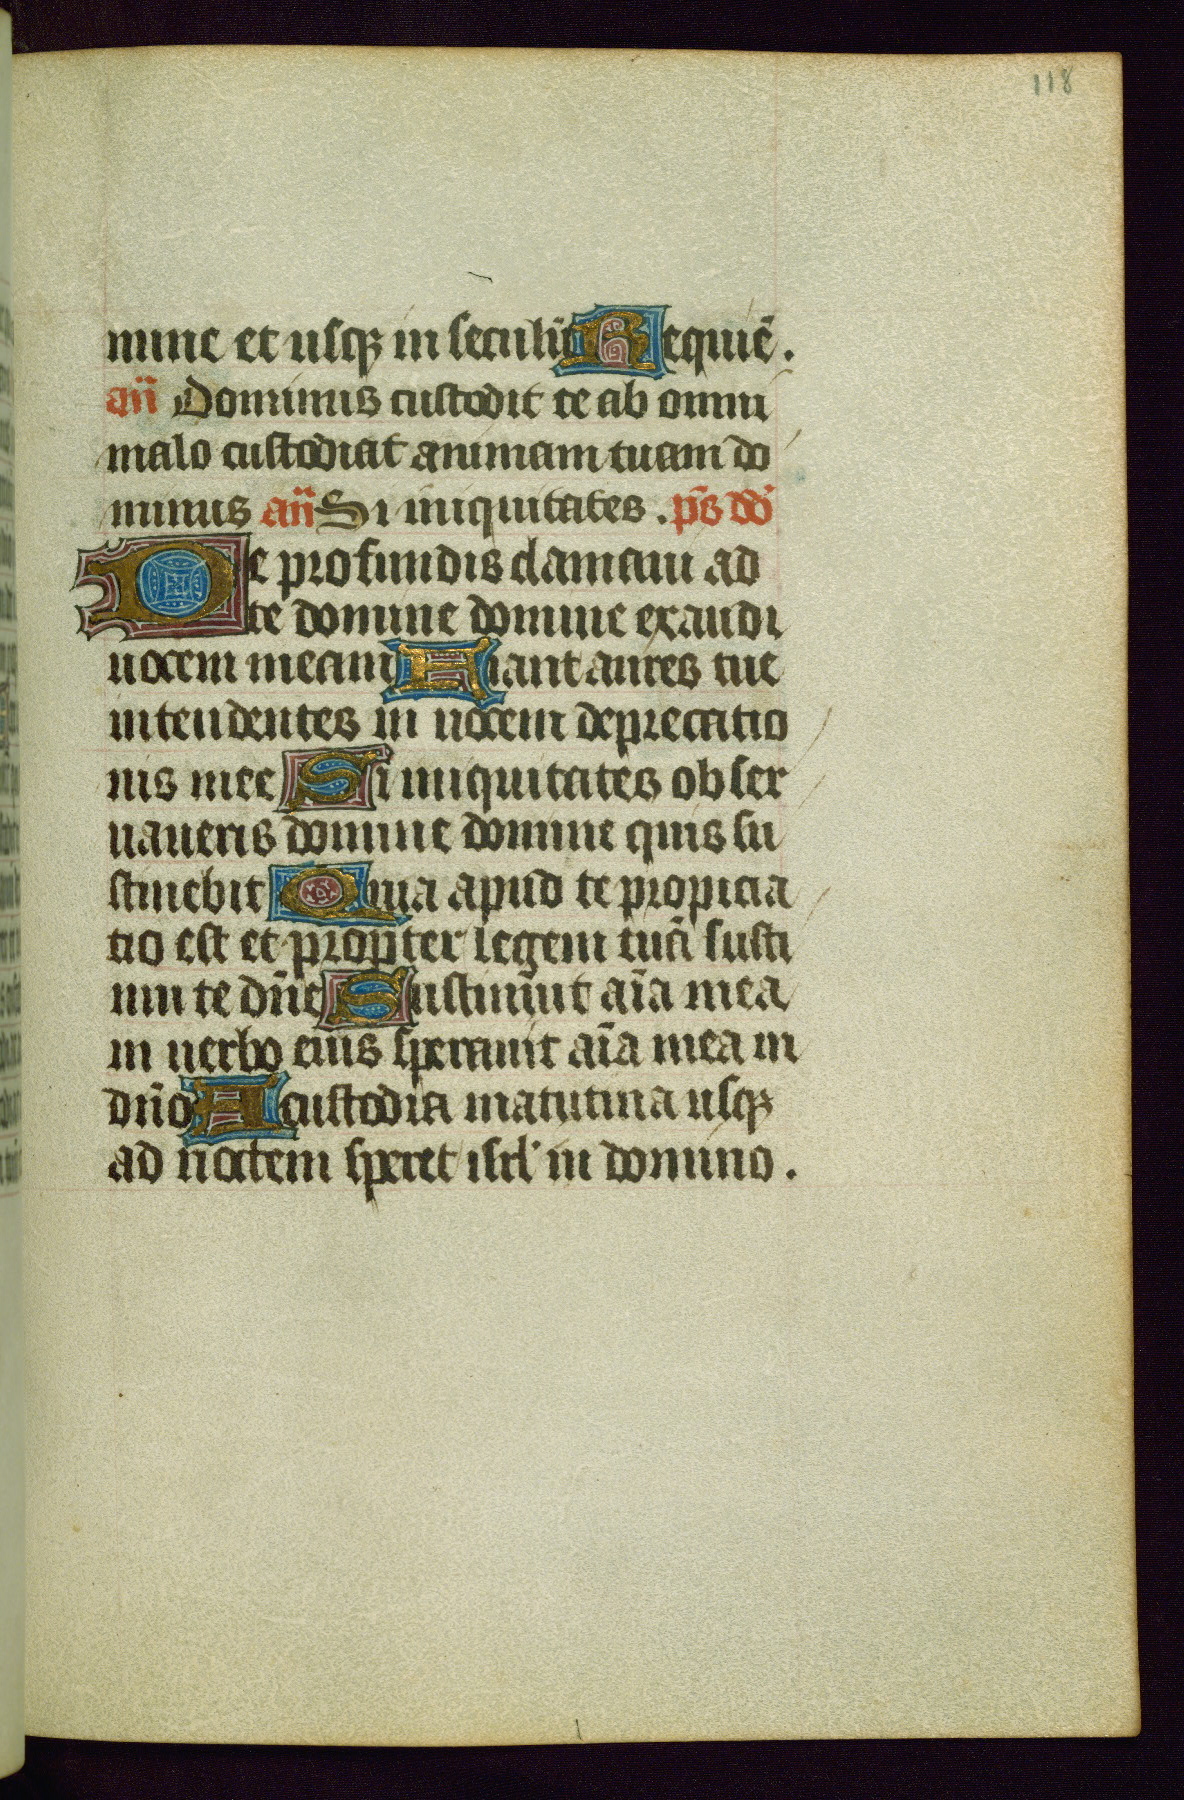 118
nunc et usqꝫ in seculū Requiē.
añ Dominus custodit te ab omni
malo custodiat animam tuam do
minus añ Si iniquitates. p̄s dd̄
De profundis clamaui ad
te domine domine exaudi
uocem meam Fiant aures tue
intendentes in uocem deprecatio
nis mee Si iniquitates obser
uaueris domine domine quis su
stinebit Quia apud te propicia
tio est et propter legem tuā susti
nui te dn̄e Sustinuit aīa mea
in uerbo eius sperauit aīa mea in
dn̄o A custodia matutina usqꝫ
ad noctem speret isrl' in domino.